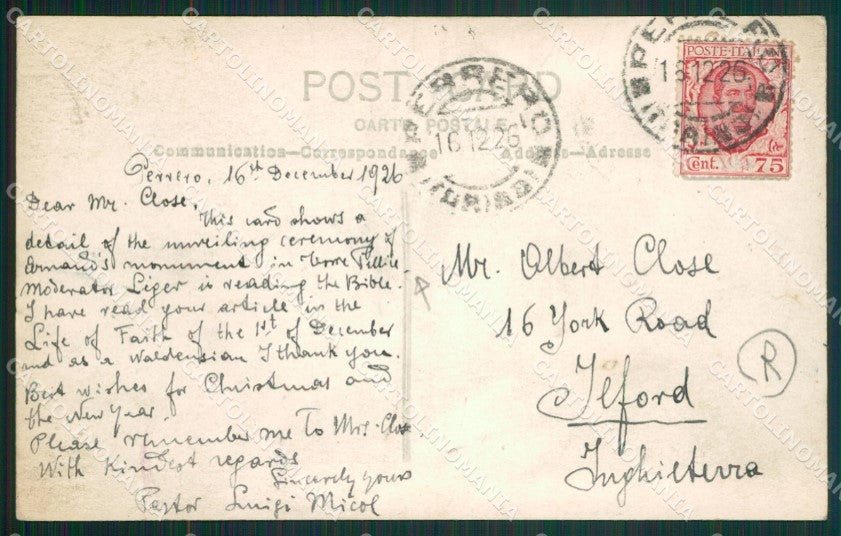 POST CARD
CARTE POSTALE
Communication—Correspondance
Address—Adresse
PERRERO
(TORINO)
16.12.26
PERRERO
(TORINO)
16.12.26
POSTE·ITALIANE
Cent. 75
Perrero, 16th December 1926
Dear Mr. Close,
This card shows a
detail of the unveiling ceremony of
Arnaud's monument in Torre Pellice.
Moderator Léger is reading the Bible.
I have read your article in the
Life of Faith of the 1st of December
and as a Waldensian I thank you.
Best wishes for Christmas and
the New Year.
Please remember me to Mrs. Close
With Kindest regards
Sincerely yours
Pastor Luigi Micol
Mr. Albert Close
16 York Road
Ilford
Inghilterra
R
CARTOLINOMANIA